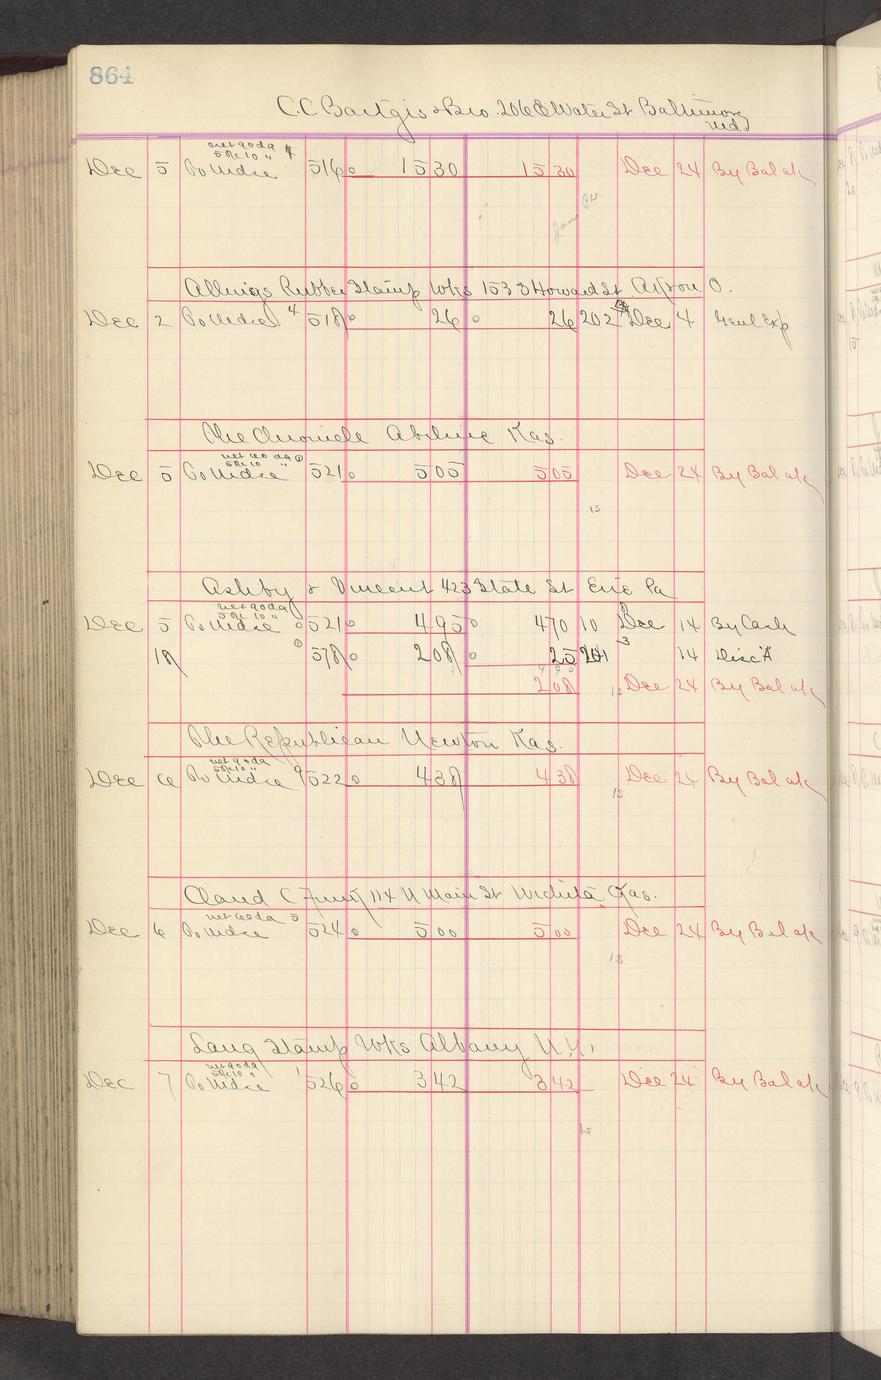 864
C.C. Bartgis & Bro. 206 E Water St Baltimore
Md
net 90 da
5% 10 "
Dec 5 To Mdse 516 15 30 15 30 Dec 24 By Bal a/c
Jan
Rubber Stamp Wks 153 S Howard St Akron O.
Dec 2 To Mdse 4 518 26 26 202 Dec 4 Genl Exp
The Chronicle Abilene Kas.
net 60 da
5% 10 "
Dec 5 To Mdse 521 5 05 5 05 Dec 24 By Bal a/c
15
Ashby & Vincent 423 State St Erie Pa
net 90 da
5% 10 "
Dec 5 To Mdse 521 4 95 4 70 10 Dec 14 By Cash
18 578 2 08 25 201 14 Disc't
4 95
2 08 15 Dec 24 By Bal a/c
The Republican Newton Kas.
net 90 da
5% 10 "
Dec 6 To Mdse 9 522 4 38 4 38 Dec 24 By Bal a/c
15
Claud C 114 N Main St Wichita Kas.
net 60 da 5
Dec 6 To Mdse 524 5 00 5 00 Dec 24 By Bal a/c
15
Lang Stamp Wks Albany N.Y.
net 90 da
5% 10 "
Dec 7 To Mdse 1 526 3 42 3 42 Dec 24 By Bal a/c
15